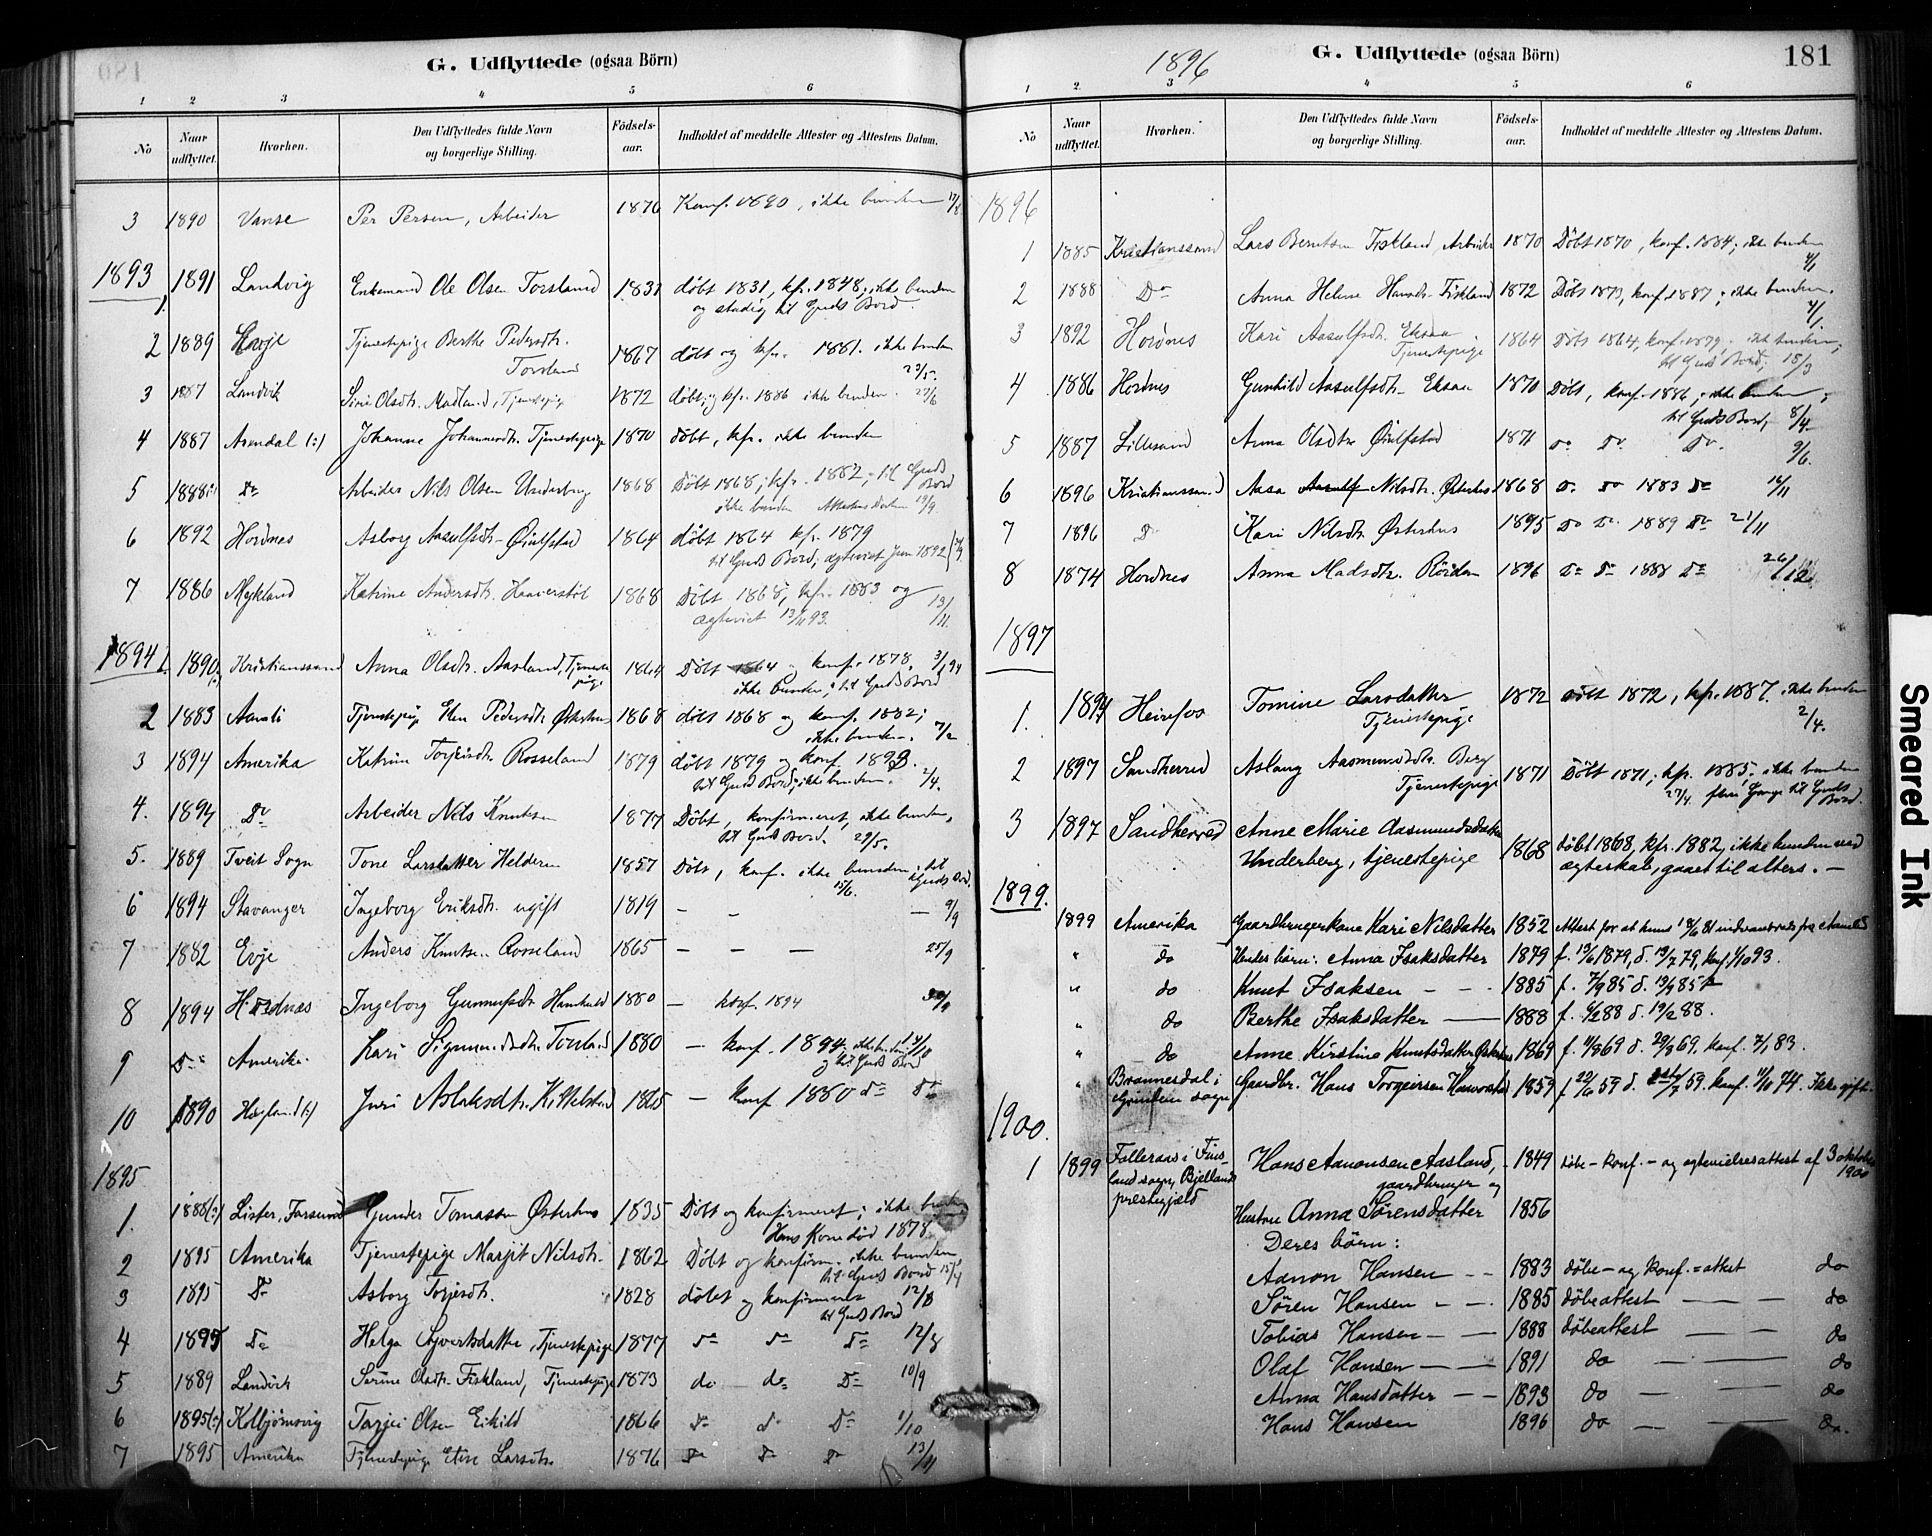 G. Udflyttede (ogsaa Börn)
1 2 3 4 5 6
No
Naar udflyttet.
Hvorhen.
Den Udflyttedes fulde Navn og borgerlige Stilling.
Födsels-aar.
Indholdet af meddelte Attester og Attestens Datum.
3 1890 Vanse Per Persen, Arbeider 1876 Konf. 1890, ikke bunden
1893
1 1891 Landvig Enkemand Ole Olsen Torsland 1831 døbt 1831, kfr. 1848, ikke bunden
og stadig til Guds Bord.
2 1889 Evje Tjenestepige Berthe Pedersdtr. 1867 døbt og kfr. 1881. ikke bunden
Torsland 23/5.
3 1887 Landvik Siri Olsdtr. Madland, Tjenestepig 1872 døbt, og kfr. 1886 ikke bunden.
4 1887 Arendal (:) Johanne Johannesdtr. Tjenestepige 1870 døbt, kfr. ikke bunden
5 1888 Do Arbeider Nils Olsen Underberg 1868 Døbt 1868; kfr. 1882; til Guds Bord
ikke bunden Attestens datum 19/9.
6 1892 Hordnes Asborg Aasulfsdtr. Øiulfstad 1864 døbt 1864 kfr. 1879
til Guds Bord, ægteviet Juni 1892
7 1886 Mykland Katrine Andersdtr. Haaverstøl 1868 Døbt 1868, kfr. 1883 og 13/11.
ægteviet 13/11 93.
1894 1. 1890 Kristianssand Anna Olsdtr. Aasland, Tjenestepige 1864 Døbt 1864 og konf. 1878, 3/1 94
ikke bunden; til Guds Bord
2 1883 Aamli Tjenestepig Elen Pedersdtr. Østerhus 1868 døbt 1868 og konf. 1882;
ikke bunden. 7/2
3 1894 Amerika Katrine Torjeisdtr. Rosseland 1879 døbt 1879 og konf 1893.
til Guds Bord; ikke bunden. 2/4.
4. 1894 Do Arbeider Nils Knutsen 1877 Døbt, konfirmeret, ikke bunden,
til Guds Bord. 29/5.
5. 1889 Tveit Sogn Tone Larsdatter Helderen 1857 Døbt, konf. ikke bunden, til Guds Bord. 15/6.
6 1894 Stavanger Ingeborg Eriksdtr. ugift 1819 — — — 9/9
7 1882 Evje Anders Knutsen Rosseland 1865 — — — 25/9
8 1894 Hordnæs Ingeborg Gunnufsdtr. 1880 — konf. 1894
9 Do Amerika. Kari Sigmundsdtr. Torsland 1880 — konf. 1894. ikke bunden
og til Guds Bord
10 1890 Høvland (:) Juri Aslaksdtr. Kittelstad 1865 — konf 1880 do Do
1895
1. 1888 (:) Lister, Farsund Gunder Tomassen Østerhus 1835 Døbt og konfirmeret; ikke bunden
Hans Kone død 1878.
2 1895 Amerika Tjenestepige Marjit Nilsdtr. 1862 Døbt og konfirm. ikke bunden
til Guds Bord 15/4
3 1895 Do Asborg Torjesdtr. 1828 døbet og konfirmeret 12/8
til Guds Bord
4 1895 Do Helga Syvertsdatter, Tjenestepige 1877 do do Do 12/8
5 1889 Landvik Serine Olsdtr. Fiskland, Tjenestepige 1873 do do Do 10/9
6 1895 (:) Kolbjørnsvig Tarjei Olsen Eikild 1866 do do Do 1/10
7 1895 Amerika Tjenestepige Eline Larsdtr. 1876 Do do Do 13/11
1896
G. Udflyttede (ogsaa Börn)
181
1 2 3 4 5 6
No
Naar udflyttet.
Hvorhen.
Den Udflyttedes fulde Navn og borgerlige Stilling.
Födsels-aar.
Indholdet af meddelte Attester og Attestens Datum.
1896
1 1885 Kristianssand Lars Berntsen Fiskland, Arbeider 1870 Døbt 1870, konf. 1884; ikke bunden
4/1
2 1888 Do Anna Helene Hansdtr. Fiskland 1872 Døbt 1873, konf. 1887; ikke bunden.
4/1.
3 1892 Hordnes Kari Aasulfsdtr. Eksaa 1864 Døbt 1864, konf. 1879. ikke bunden;
Tjenestepige til Guds Bord; 15/3
4 1886 Hordnes Gunhild Aasulfsdtr. Eksaa 1870 Døbt, konf. 1886; ikke bunden;
til Guds Bord, 8/4
5 1887 Lillesand Anna Olsdtr. Øiulfstad 1871 do do do. 9/6.
6 1896 Kristianssand Aasa Aasulf Nilsdtr. Østerhus 1868 do do 1883 do 14/11
7 1896 Do Kari Nilsdtr. Østerhus 1895 Do Do. 1889 Do 21/11
8 1874 Hordnes Anna Madsdtr. 1896 Do Do 1888 Do 26/12.
1897
1. 1894 Heirefos Tomine Larsdatter 1872 døbt 1872, kfr. 1887. ikke bunden
Tjenestepige 2/4.
2 1897 Sandherred Aslaug Aasmundsdtr. Berg 1871 Døbt 1871; kfr. 1885. ikke bunden
Tjenestepige 27/4. flere Gange til Guds Bord.
3 1897 Sandherred Anne Marie Aasmundsdatter 1868 døbt 1868, kfr. 1882, ikke bunden ved
Underberg, tjenestepige ægteskab, gaaet til alters. —
1899.
1899 Amerika Gaardbrugerkone Kari Nilsdatter 1852 Attest for at hun 18/6 81 indvandrede fra Aamli
" do Hendes børn: Anna Isaksdatter 1879 f. 15/6 1879, d. 13/7 79, konf. 1/10 93.
" do Knut Isaksen — — 1885 f. 7/9 85 d. 13/9 85
" do Berthe Isaksdatter — 1888 f. 4/2 88 d. 19/2 88.
" do Anne Kirstine Knutsdatter Østerhus 1869 f. 11/8 69 d. 29/8 69. konf. 7/1 83.
" Brønnesdal i Gaardbr. Hans Torgeirsen 1859 f 22/6 59 d. 59. konf. 11/10 74. Ikke gift.
sogn
1900.
1 1899 Folleraas i Fins- Hans Aanonsen Aasland, 1849 døbe- konf.- og ægtevielsesattest af 3 oktober
land sogn, Bjelland gaardbruger og 1900
prestegjæld
Hustru Anna Sørensdatter 1856
Deres børn:
Aanon Hansen — — 1883 døbe- og konf.=attest do
Søren Hansen — — 1885 døbeattest — — do
Tobias Hansen — — 1888 døbeattest — — do
Olaf Hansen — — 1891 do — — do
Anna Hansdatter — — 1893 do — — do
Hans Hansen 1896 do — — do.
Smeared Ink